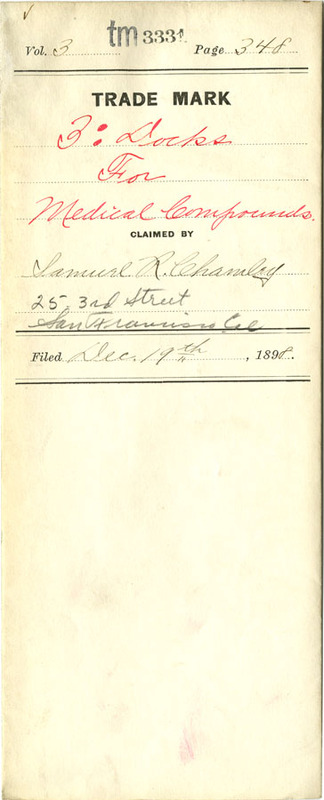 Vol. 3 tm 3331 Page 348
TRADE MARK
3: Docks
For
Medical Compounds.
CLAIMED BY
Samuel R. Chamley
25 3rd Street
San Francisco Cal
Filed Dec. 19th, 1898.